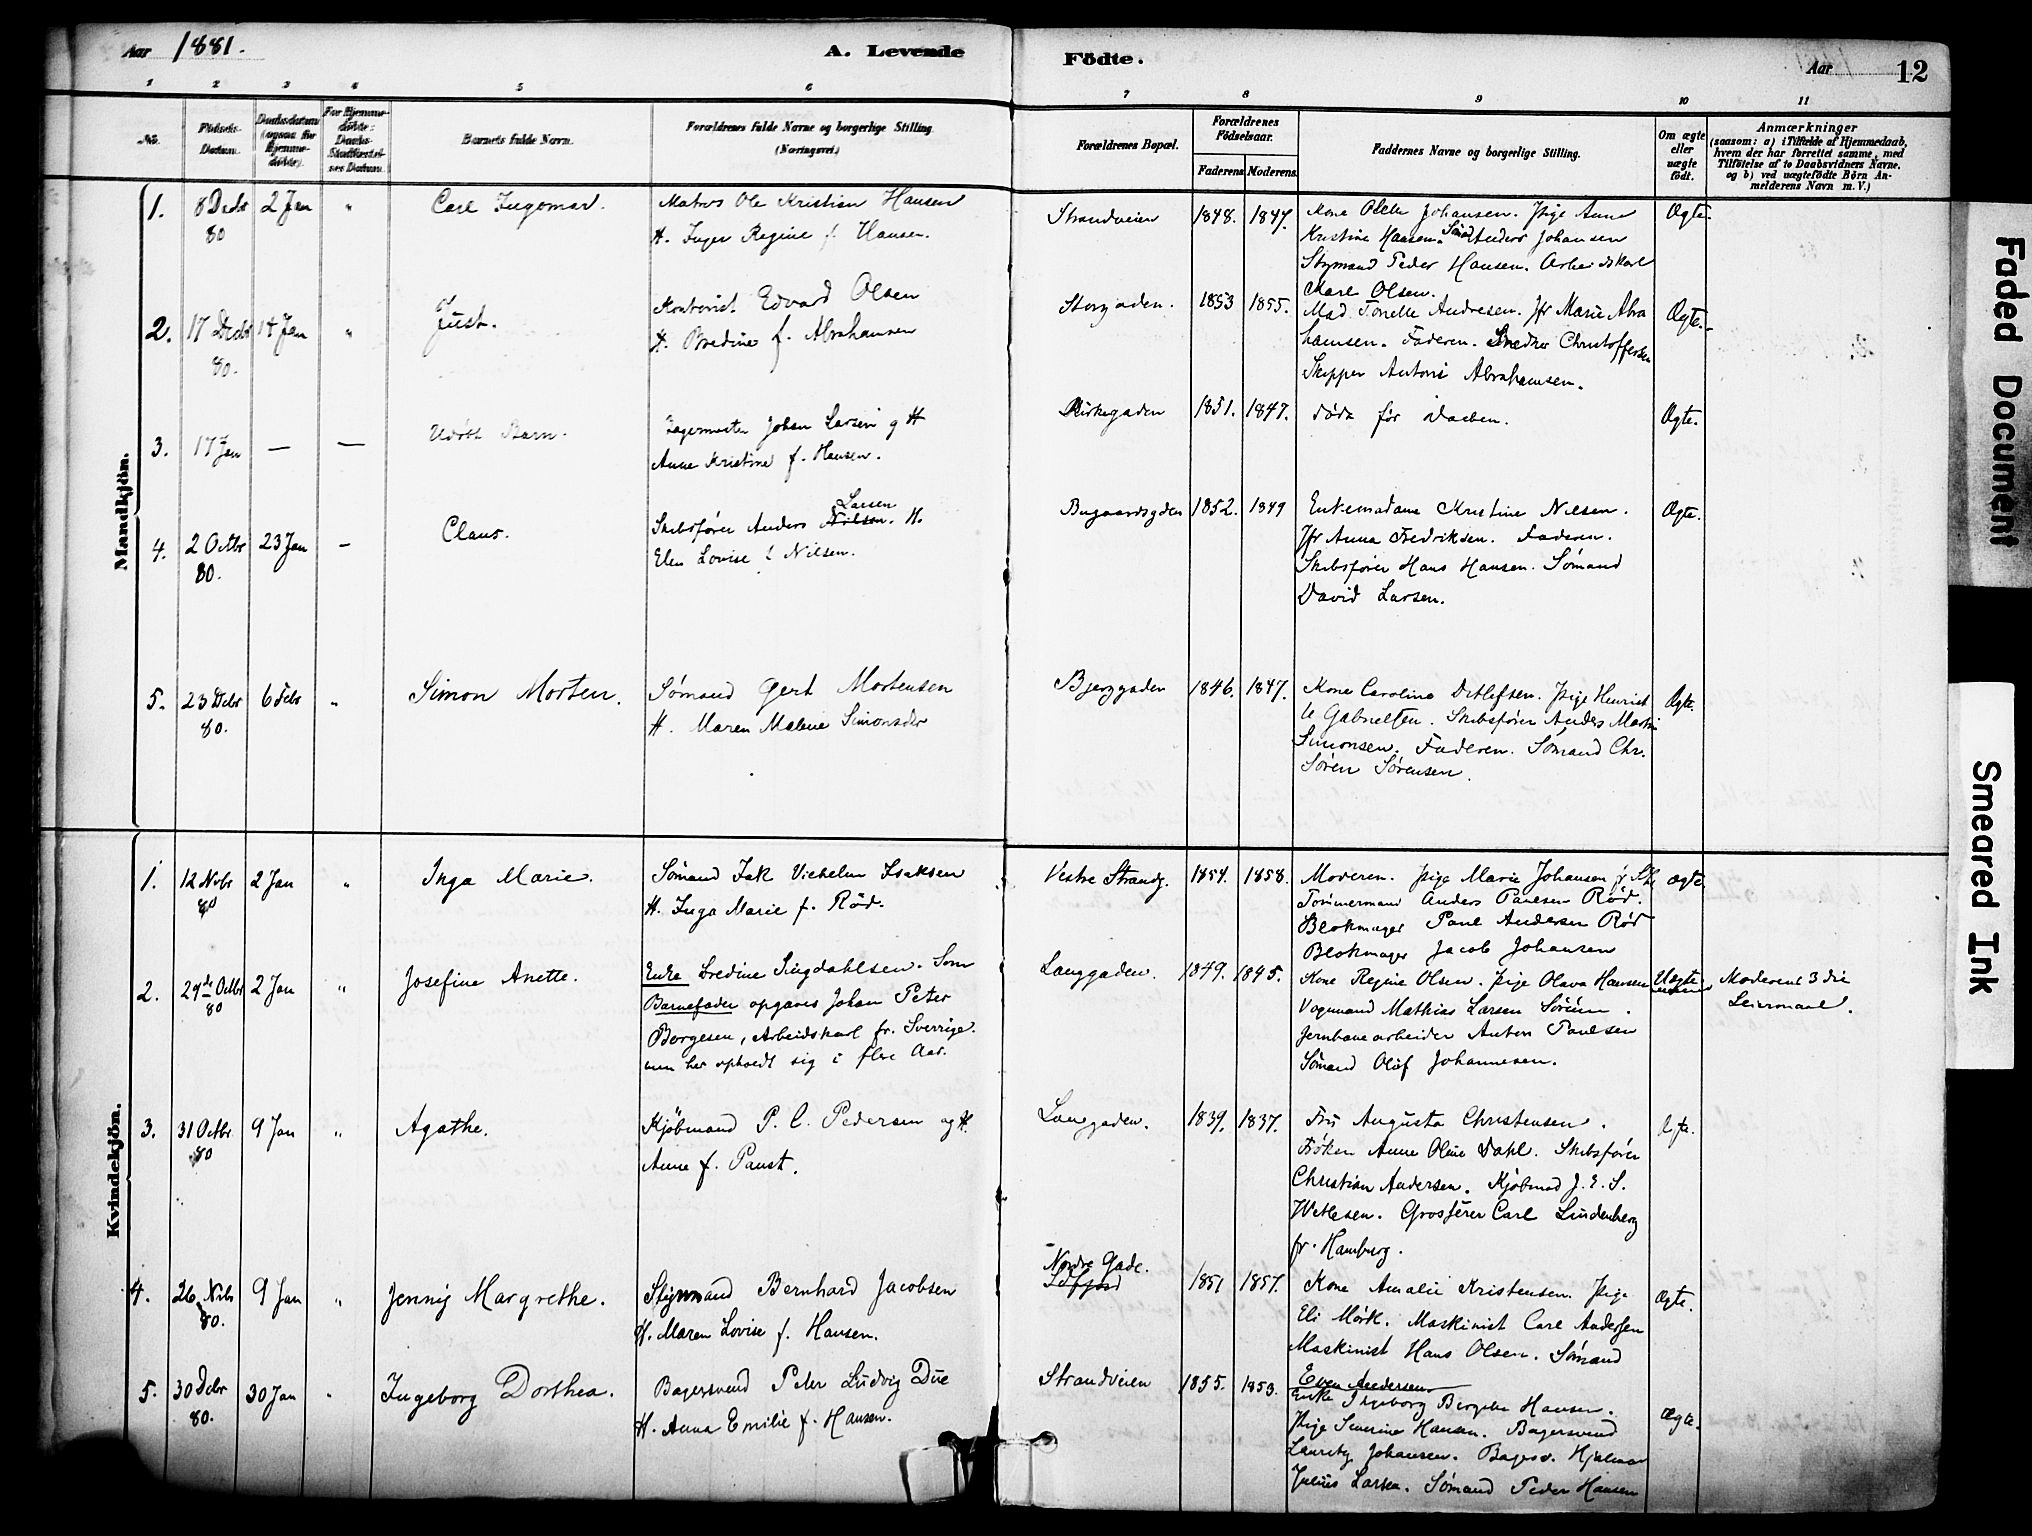 Aar 1881.
A. Levende
Födte.
Aar 12
1 2 3 4 5 6 7 8 9 10 11
No.
Fødsels-Datum.
Daabsdatum (ogsaa for Hjemmedøbte).
For Hjemmedøbte: Daabs-Stadfæstelses Datum.
Barnets fulde Navn.
Forældrenes fulde Navne og borgerlige Stilling.
(Næringsvei.)
Forældrenes Bopæl.
Forældrenes Födselsaar.
Faderens. Moderens.
Faddernes Navne og borgerlige Stilling.
Om ægte eller uægte födt.
Anmærkninger
(saasom: a) i Tilfælde af Hjemmedaab,
hvem der har forrettet samme, med
Tilföielse af to Daabsvidners Navne.
og b) ved uægtefödte Börn An-
melderens Navn m. V.)
Mandkjön.
1. 8 Decbr 80 2 Jan " Carl Ingomar.
Matros Ole Kristian Hansen
H. Inger Regine f. Hansen.
Strandveien 1848. 1847.
Kone Johansen. Pige Anne
Kristine Hansen. Sömd Anders Johansen
Styrmand Peder Hansen. Arbeidskarl
Karl Olsen.
Ægte.
2. 17 Decbr 80. 14 Jan " Just.
Kontorist Edvard Olsen
H. Bredine f. Abrahamsen
Storgaden. 1853 1855.
Mad. Tonelle Andresen. Jfr Marie Abra
hamsen. Faderen. Snedker Christoffersen
Skipper Antoni Abrahamsen.
Ægte.
3. 17 Jan — — Udöbt Barn.
Lagermester Johan Larsen og H
Anne Kristine f. Hansen.
Kirkegaden 1851. 1847. död før Daaben. Ægte.
4. 2 Octbr 80. 23 Jan – Claus.
Larsen
Skibsfører Anders Nilsen. H.
Elen Lovise f Nilsen.
Bugaardsgden 1852. 1849
Enkemadame Kristine Nilsen.
Jfr Anna Fredriksen. Faderen.
Skibsfører Hans Hansen. Sömand
David Larsen.
Ægte.
5. 23 Decbr 80. 6 Febr " Simon Morten.
Sömand Gert Mortensen
H. Maren Malene Simonsdr
Bjerggaden 1846. 1847.
Kone Caroline Detlefsen. Pige Henriet
te Gabrielsen. Skibsfører Anders Martin
Simonsen. Faderen. Sömand Chr.
Sören Sörensen.
Ægte.
Kvindekjön.
1. 12 Nvbr 80 2 Jan " Inga Marie.
Sömand Isak Vilhelm Isaksen
H. Inga Marie f. Röd.
Vestre Strandg. 1854. 1858.
Moderen. Pige Marie Johansen
Tömmermand Anders Paulsen Röd.
Blokmager Paul Andersen Röd
Blokmager Jacob Johansen
Ægte.
2. 29de Octbr 80 2 Jan " Josefine Anette.
Enke Bredine Ringdahlsen. Som
Barnefader opgaves Johan Peter
Borgesen, Arbeidskarl fr. Sverrige.
men har opholdt sig i flere Aar.
Langgaden. 1849. 1845.
Kone Regine Olsen. Pige Olava Hansen
Vognmand Mathias Larsen Sörum.
Jernbanearbeider Anton Paulsen
Sömand Olof Johannesen.
Uægte
Moderens 3die
Leiermaal.
3. 31 Octbr 80 9 Jan " Agathe.
Kjöbmand P. C. Pedersen og H.
Anne f. Paust.
Langgaden. 1839. 1837.
Fru Augusta Christensen.
Fröken Anne Oline Dahl. Skibsfører
Christian Andersen. Kjöbmd J. E. S.
Wetlesen. Grosserer Carl Lindenberg
fr. Hamburg.
Ægte.
4. 26 Nvbr 80. 9 Jan " Jenny Margrethe.
Styrmand Bernhard Jacobsen
H. Maren Lovise f. Hansen.
Nordre Gade.
1851 1857.
Kone Amalie Kristensen. Pige
Eli Mörk. Maskinist Carl Andersen
Maskinist Hans Olsen. Sömand
Even Andersen
Ægte.
5. 30 Decbr 80. 30 Jan " Ingeborg Dorthea.
Bagersvend Peter Ludvig Due
H. Anna Emilie f. Hansen.
Strandveien 1855. 1853.
Enke Ingeborg Birgitte Hansen.
Pige Severine Hansen. Bagersvend
Lauritz Johansen. Bagersv. Hjalmar
Julius Larsen. Sömand Peder Hansen
Ægte.
Faded Document
Smeared Ink